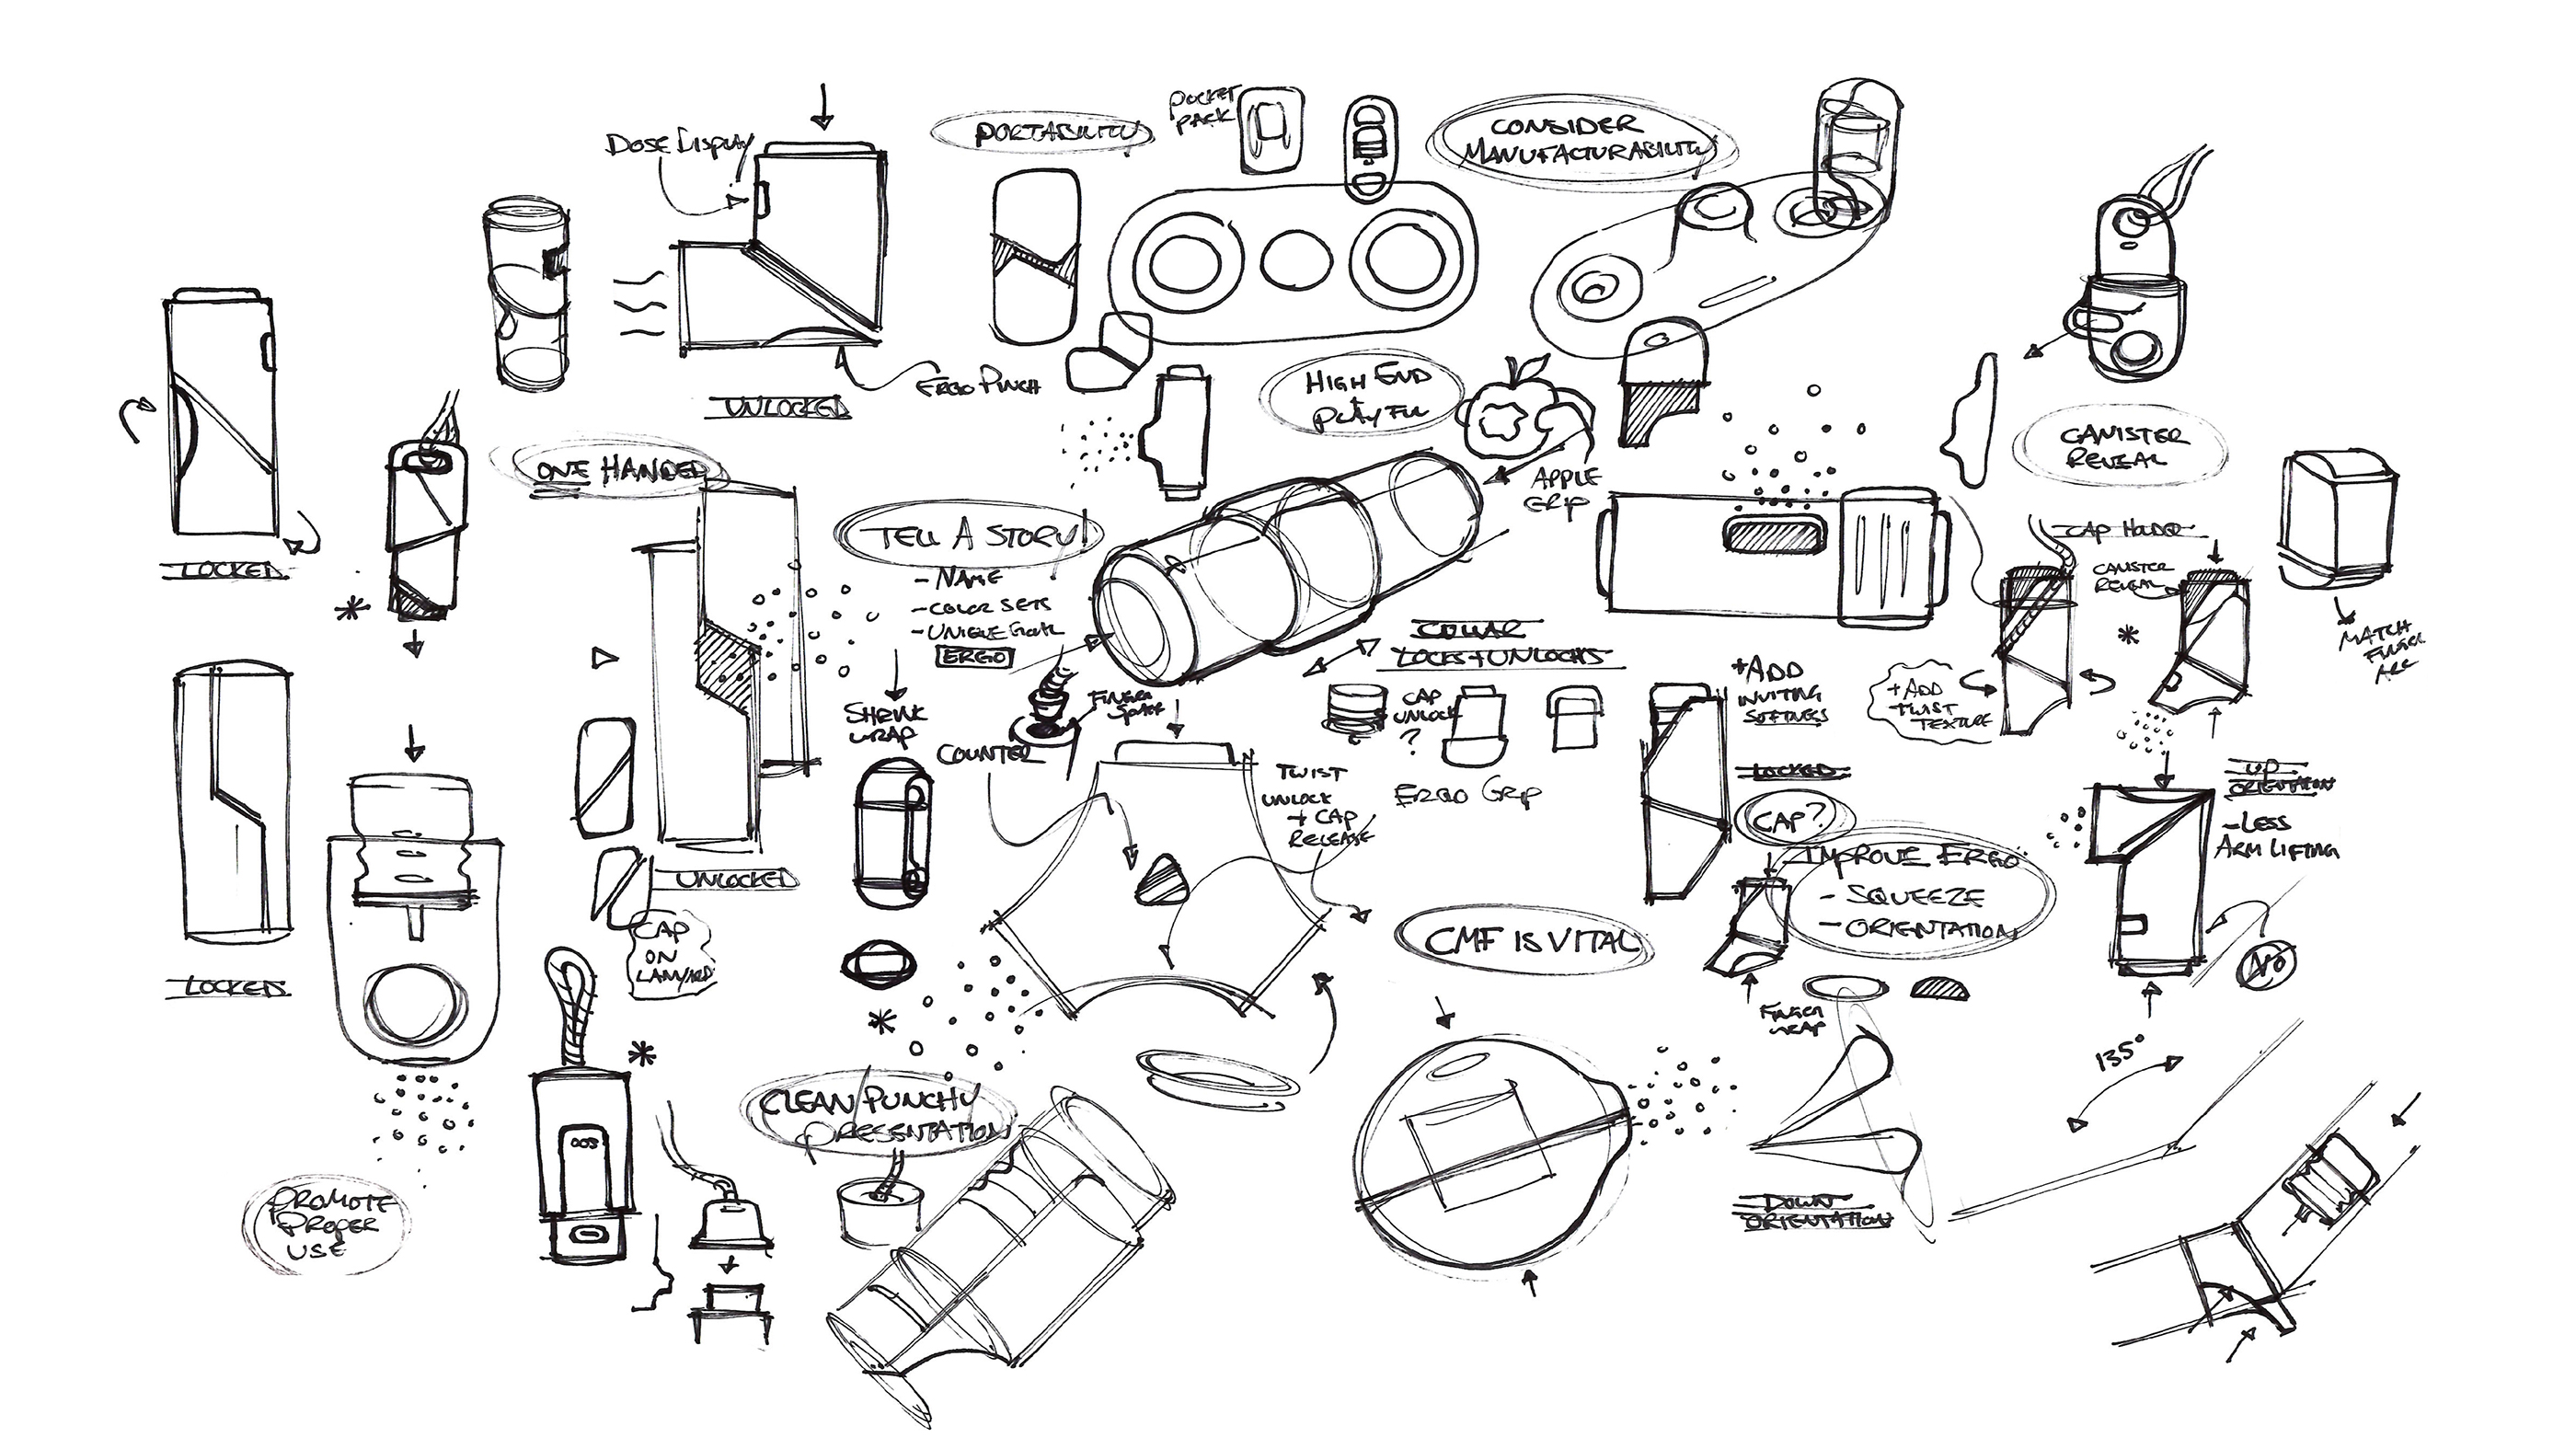 DOSE DISPLAY
PORTABILITY
POCKET
PACK
CONSIDER
MANUFACTURABILITY
ERGO PINCH
UNLOCKED
HIGH END
+
PLAYFUL
APPLE
GRIP
CANISTER
REVEAL
LOCKED
ONE HANDED
TELL A STORY!
- NAME
- COLOR SETS
- UNIQUE
ERGO
SHRINK
WRAP
COUNTER
FINGER
SPACE
COLLAR
LOCKS + UNLOCKS
CAP
UNLOCK
?
ERGO GRIP
TWIST
UNLOCK
+ CAP
RELEASE
+ADD
INVITING
SOFTNESS
LOCKED
CAP?
CAP HOLDER
CANISTER
REVEAL
+ ADD
TWIST
TEXTURE
MATCH
FINGER
ARC
UP
ORIENTATION
- LESS
ARM LIFTING
NO
IMPROVE ERGO
- SQUEEZE
- ORIENTATION
FINGER
WRAP
CMF IS VITAL
135°
DOWN
ORIENTATION
UNLOCKED
CAP
ON
LANYARD
LOCKED
003
CLEAN PUNCHY
PRESENTATION
PROMOTE
PROPER
USE